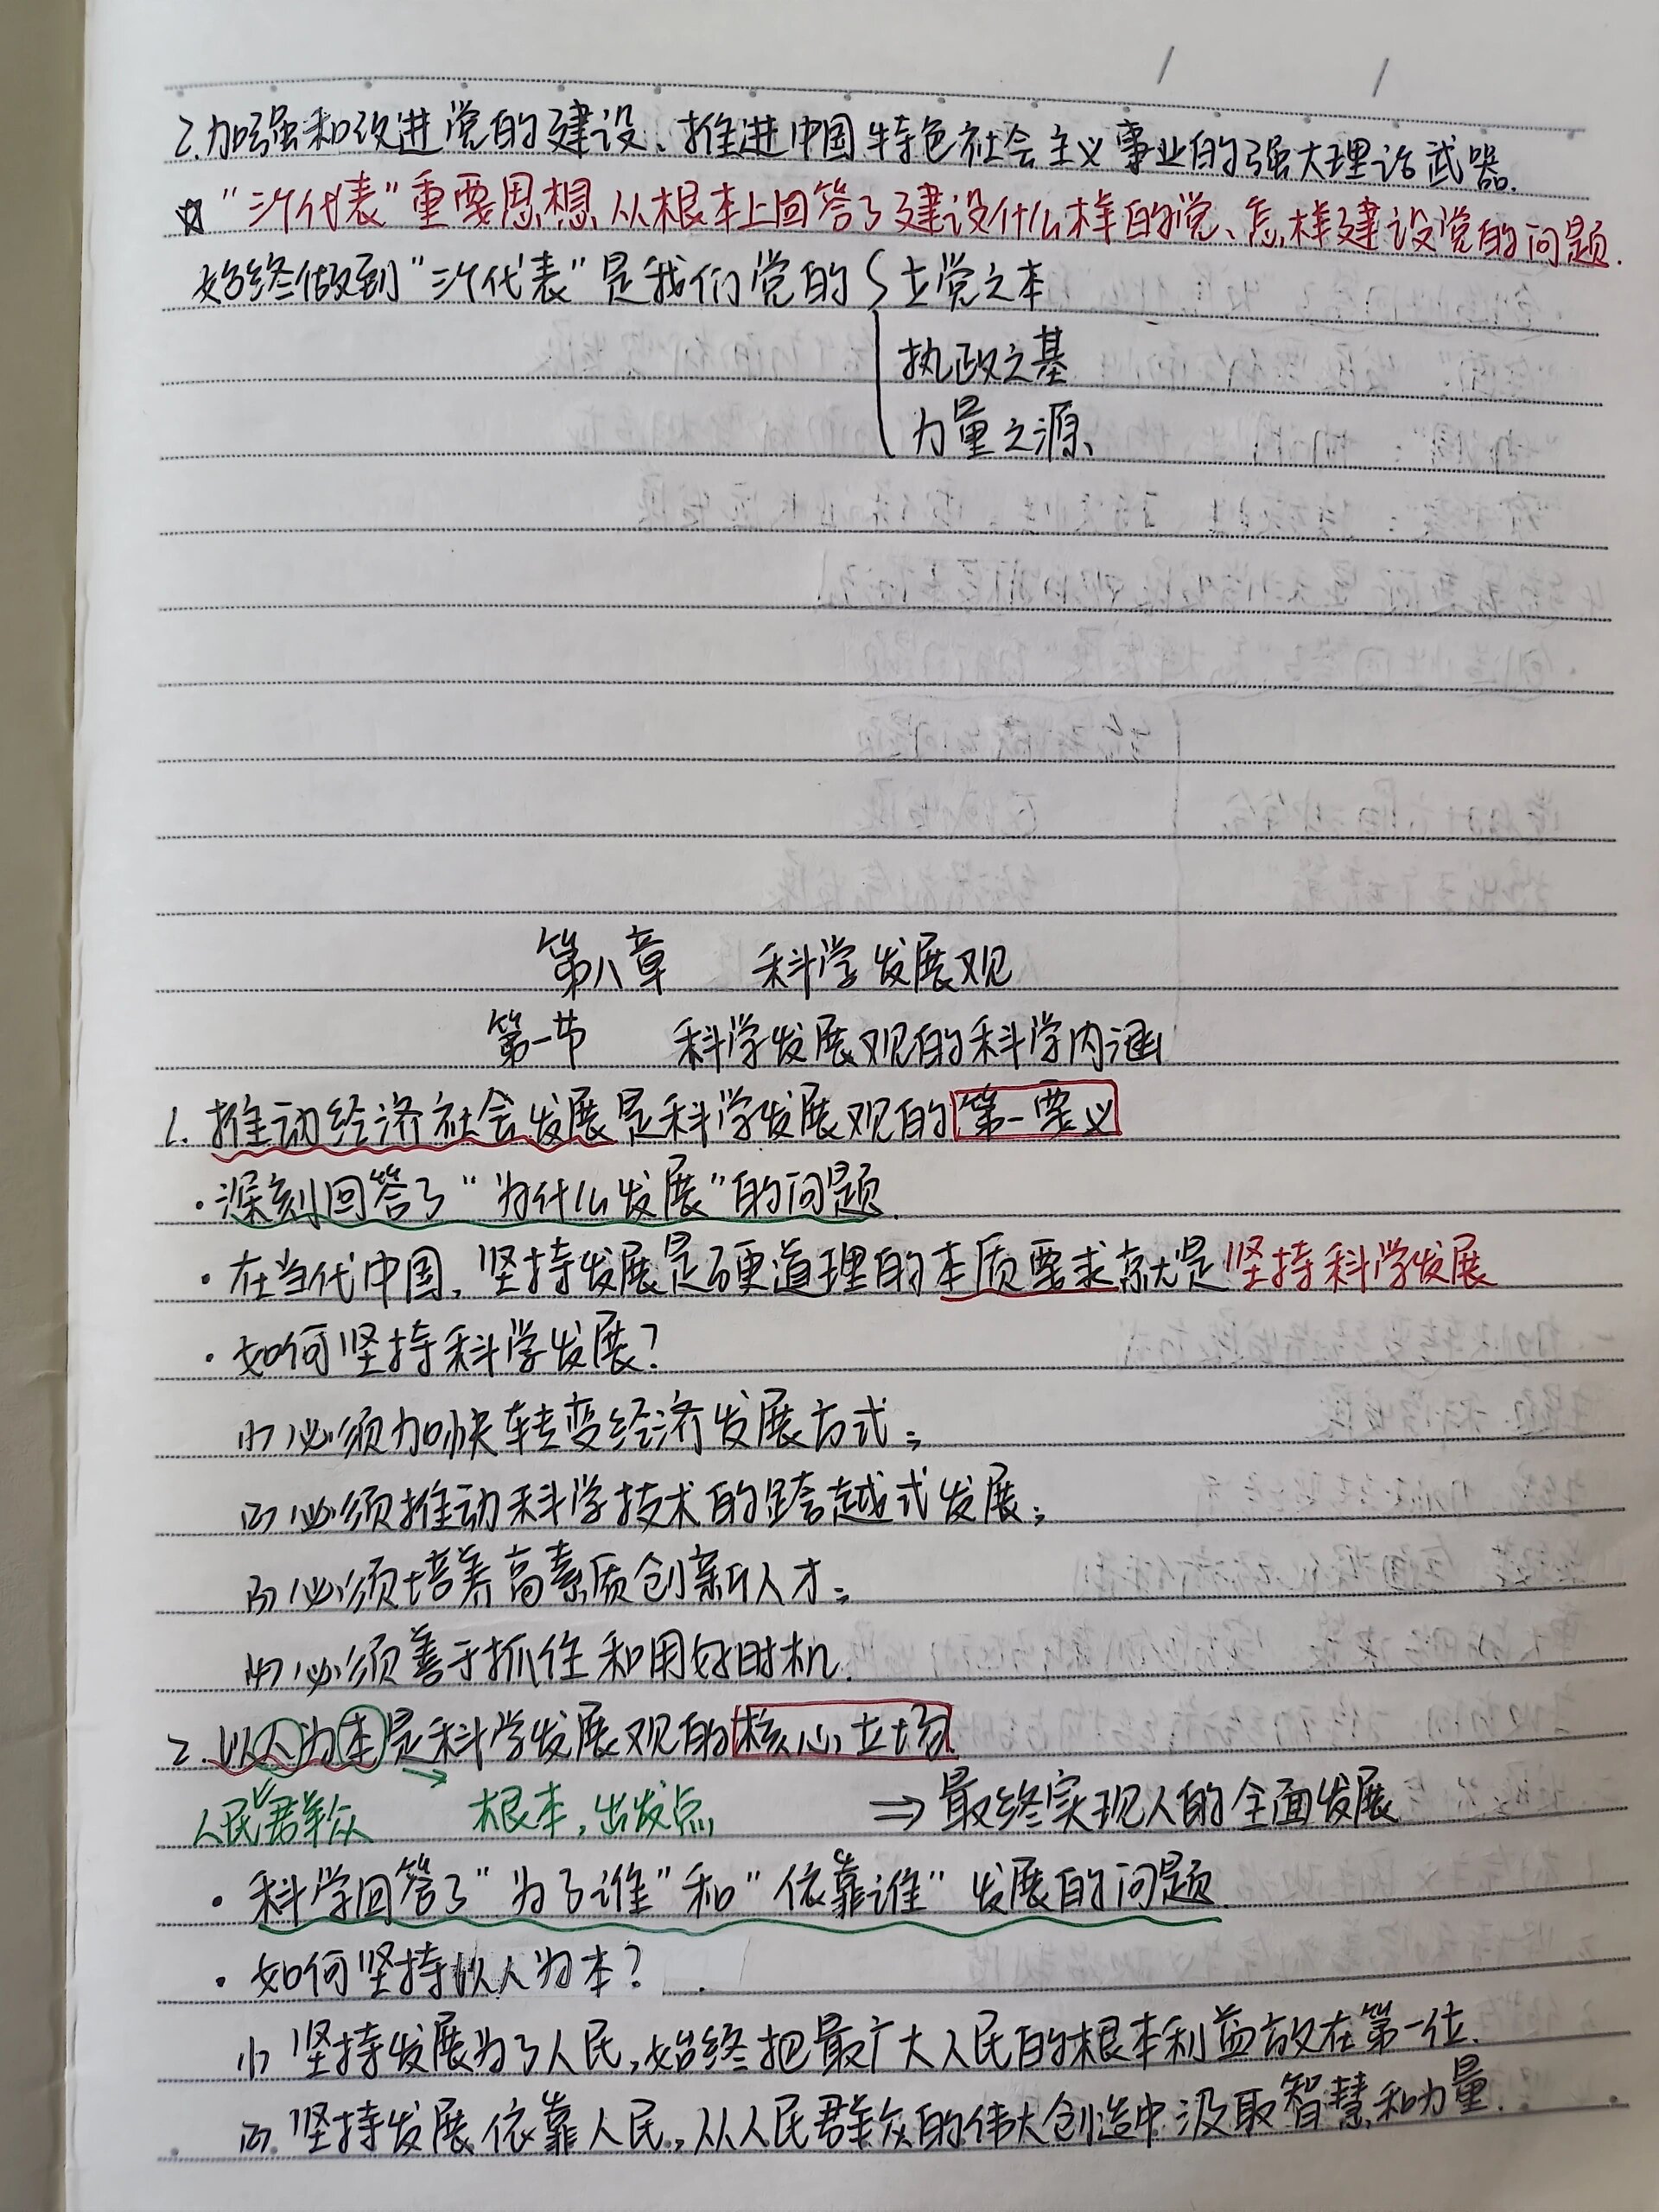 2.加强和改进党的建设、推进中国特色社会主义事业的强大理论武器.
☆ “三个代表”重要思想从根本上回答了建设什么样的党、怎样建设党的问题.
始终做到“三个代表”是我们党的{立党之本
执政之基
力量之源
第八章 科学发展观
第一节 科学发展观的科学内涵
1. 推动经济社会发展是科学发展观的第一要义
·深刻回答了“为什么发展”的问题.
·在当代中国, 坚持发展是硬道理的本质要求就是坚持科学发展
·如何坚持科学发展?
(1) 必须加快转变经济发展方式;
(2) 必须推动科学技术的跨越式发展;
(3) 必须培养高素质创新人才;
(4) 必须善于抓住和用好时机.
2. 以人为本是科学发展观的核心立场
人民群众 根本, 出发点 ⇒ 最终实现人的全面发展
·科学回答了“为了谁”和“依靠谁”发展的问题.
·如何坚持以人为本?
(1) 坚持发展为了人民, 始终把最广大人民的根本利益放在第一位.
(2) 坚持发展依靠人民, 从人民群众的伟大创造中汲取智慧和力量.